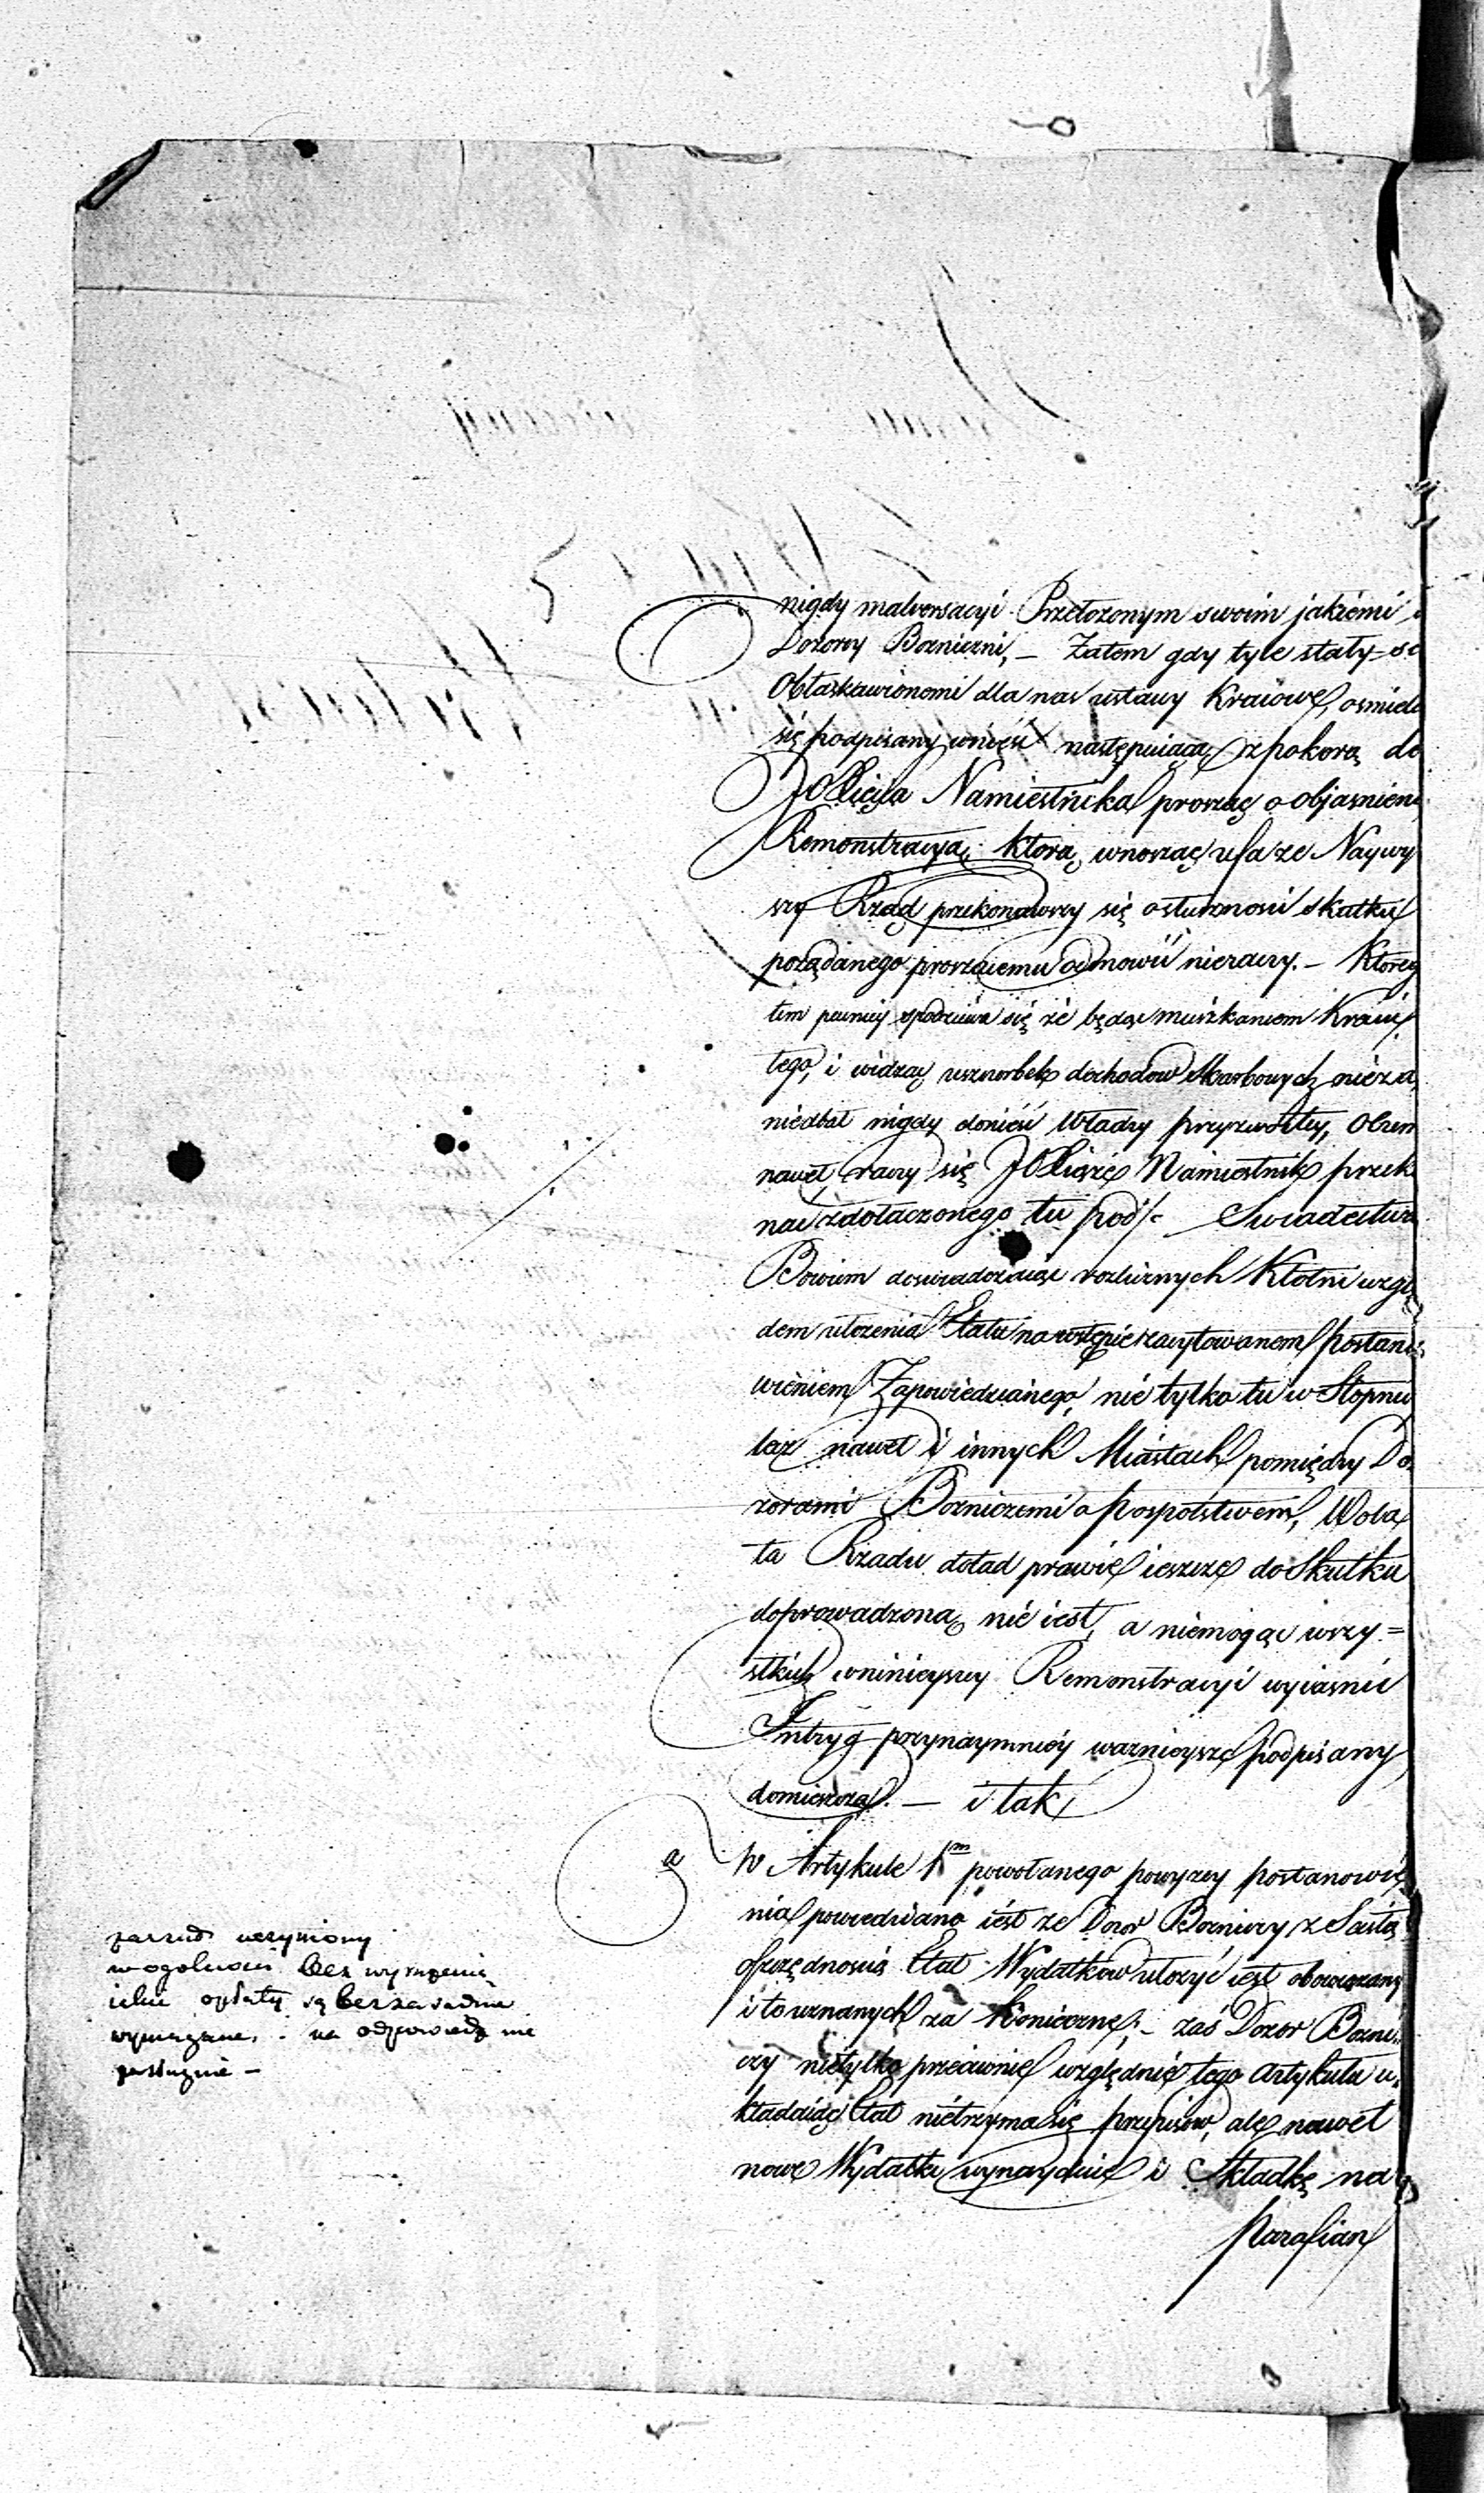 nigdy malversacyi Przełożonym swoim jakiémi
Dozorcy Bożniczni, – Zatem gdy tyle stały-
Obłaskawionemi dla nas ustawy Kraiowe, osmiela
się podpisany wnieść następuiącą z pokorą do
JO Xięcia Namiestnika prosząc o objasnieni
Remonstracyą; którą wnosząc ufa że Naywy
szy Rząd przekonawszy się o słusznosci skutku
pożądanego proszącemu odmowić nieraczy. – Któreg
tem pewniey spodziéwa się że będąc mieszkancem Kraiu
tego, i widząc uszczerbek dochodow Skarbowych nieza
niedbał nigdy donieść Władzy przyzwoitey, O czem
nawet raczy się JO Xiąże Namiestnik przeko
nać z dołączonego tu pod /. Swiadectwa
Bowiem doswiadczaiąc rozlicznych Kłótni wzglę
dem ułożenia Etatu na wstępie zacytowanem postano
wieniem Zapowiedzianego, nie tylko tu w Stopnicy
lecz nawet i innych Miastach pomiędzy Do
zorami Bożniczemi a pospólstwem, Wola
ta Rządu dotąd prawie ieszcze do Skutku
doprowadzoną nie iest, a niemogąc wszy=
stkich w ninieyszey Remonstracyi wyiasnić
Intryg przynaymniéy ważnieysze podpisany
domieszcza. – i tak
a W Artykule 1m powołanego powyzey postanowie
nia powiedziano iest że Dozór Bożniczy z Scisłą
oszczędnoscią Etat Wydatków ułożyć iest obowiązany
i to uznanych za Konieczne; – zaś Dozór Bożni
czy nietylko przeciwnie względnie tego Artykułu u
kładaiąc Etat nietrzyma się przepisów, ale nawet
nowe Wydatki wynayduie i Składkę na
parafian
zarzut uczyniony
w ogolnosci bez wyrażenia
iakie opłaty są bezzasadnie
wymagane, – na odpowiedź nie
zasługuie –